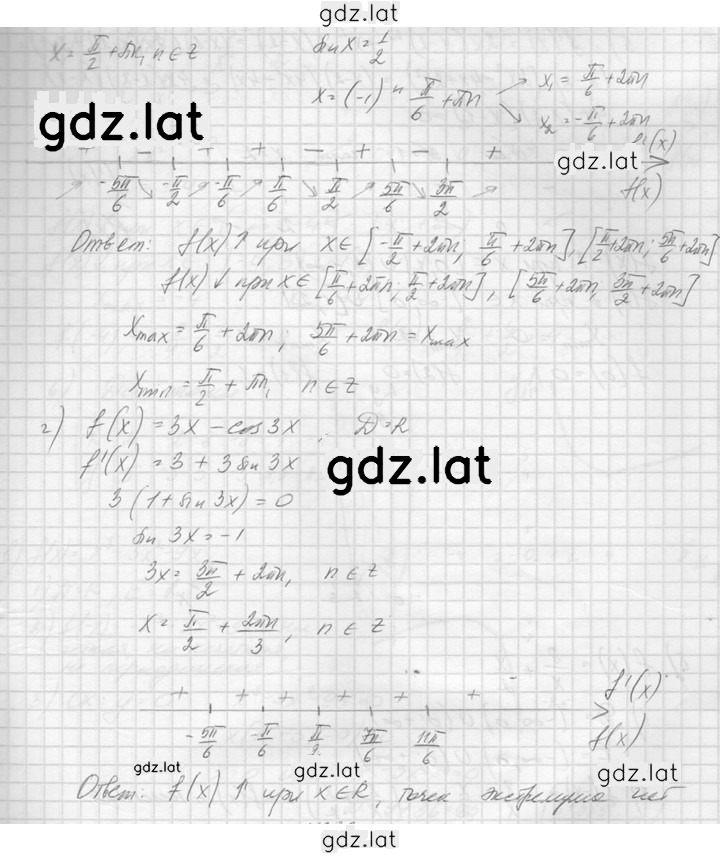 gdz.lat
x = π/2 + πn, n ∈ Z sin x = 1/2
x = (-1)ⁿ π/6 + πn x₁ = π/6 + 2πn
x₂ = -π/6 + 2πn
gdz.lat
+ - + + - + - + f'(x)
gdz.lat
-5π/6 -π/2 -π/6 π/6 π/2 5π/6 3π/2 f(x)
Ответ: f(x) ↑ при x ∈ [-π/2 + 2πn; π/6 + 2πn], [π/2 + 2πn; 5π/6 + 2πn]
f(x) ↓ при x ∈ [π/6 + 2πn; π/2 + 2πn], [5π/6 + 2πn; 3π/2 + 2πn]
xmax = π/6 + 2πn, 5π/6 + 2πn = xmax
xmin = π/2 + πn, n ∈ Z
г) f(x) = 3x - cos 3x, D = R
f'(x) = 3 + 3 sin 3x
gdz.lat
3(1 + sin 3x) = 0
sin 3x = -1
3x = 3π/2 + 2πn, n ∈ Z
x = π/2 + 2πn/3, n ∈ Z
+ + + + + + f'(x)
-5π/6 -π/6 π/2 7π/6 11π/6 f(x)
gdz.lat gdz.lat gdz.lat
Ответ: f(x) ↑ при x ∈ R, точек экстремума нет
gdz.lat